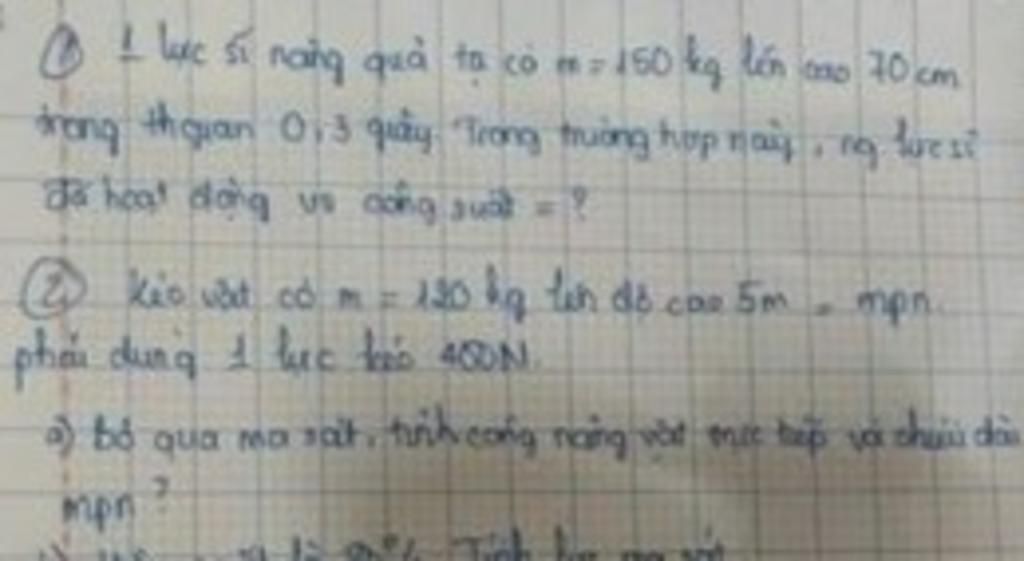 ① 1 lực sĩ nâng quả tạ có m = 150 kg lên cao 70 cm
trong thgian 0,3 giây. Trong trường hợp này, ng lực sĩ
đã hoạt động vs công suất = ?
② Kéo vật có m = 120 kg lên độ cao 5m = mpn.
phải dùng 1 lực kéo 400N.
a) bỏ qua ma sát, tính công nâng vật trực tiếp và chiều dài
mpn?
Tính lực ma sát